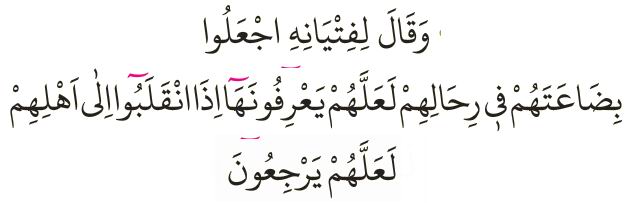 وَقَالَ لِفِتْيَانِهِ اجْعَلُوا
بِضَاعَتَهُمْ فٖى رِحَالِهِمْ لَعَلَّهُمْ يَعْرِفُونَهَٓا اِذَا انْقَلَبُٓوا اِلٰٓى اَهْلِهِمْ
لَعَلَّهُمْ يَرْجِعُونَ